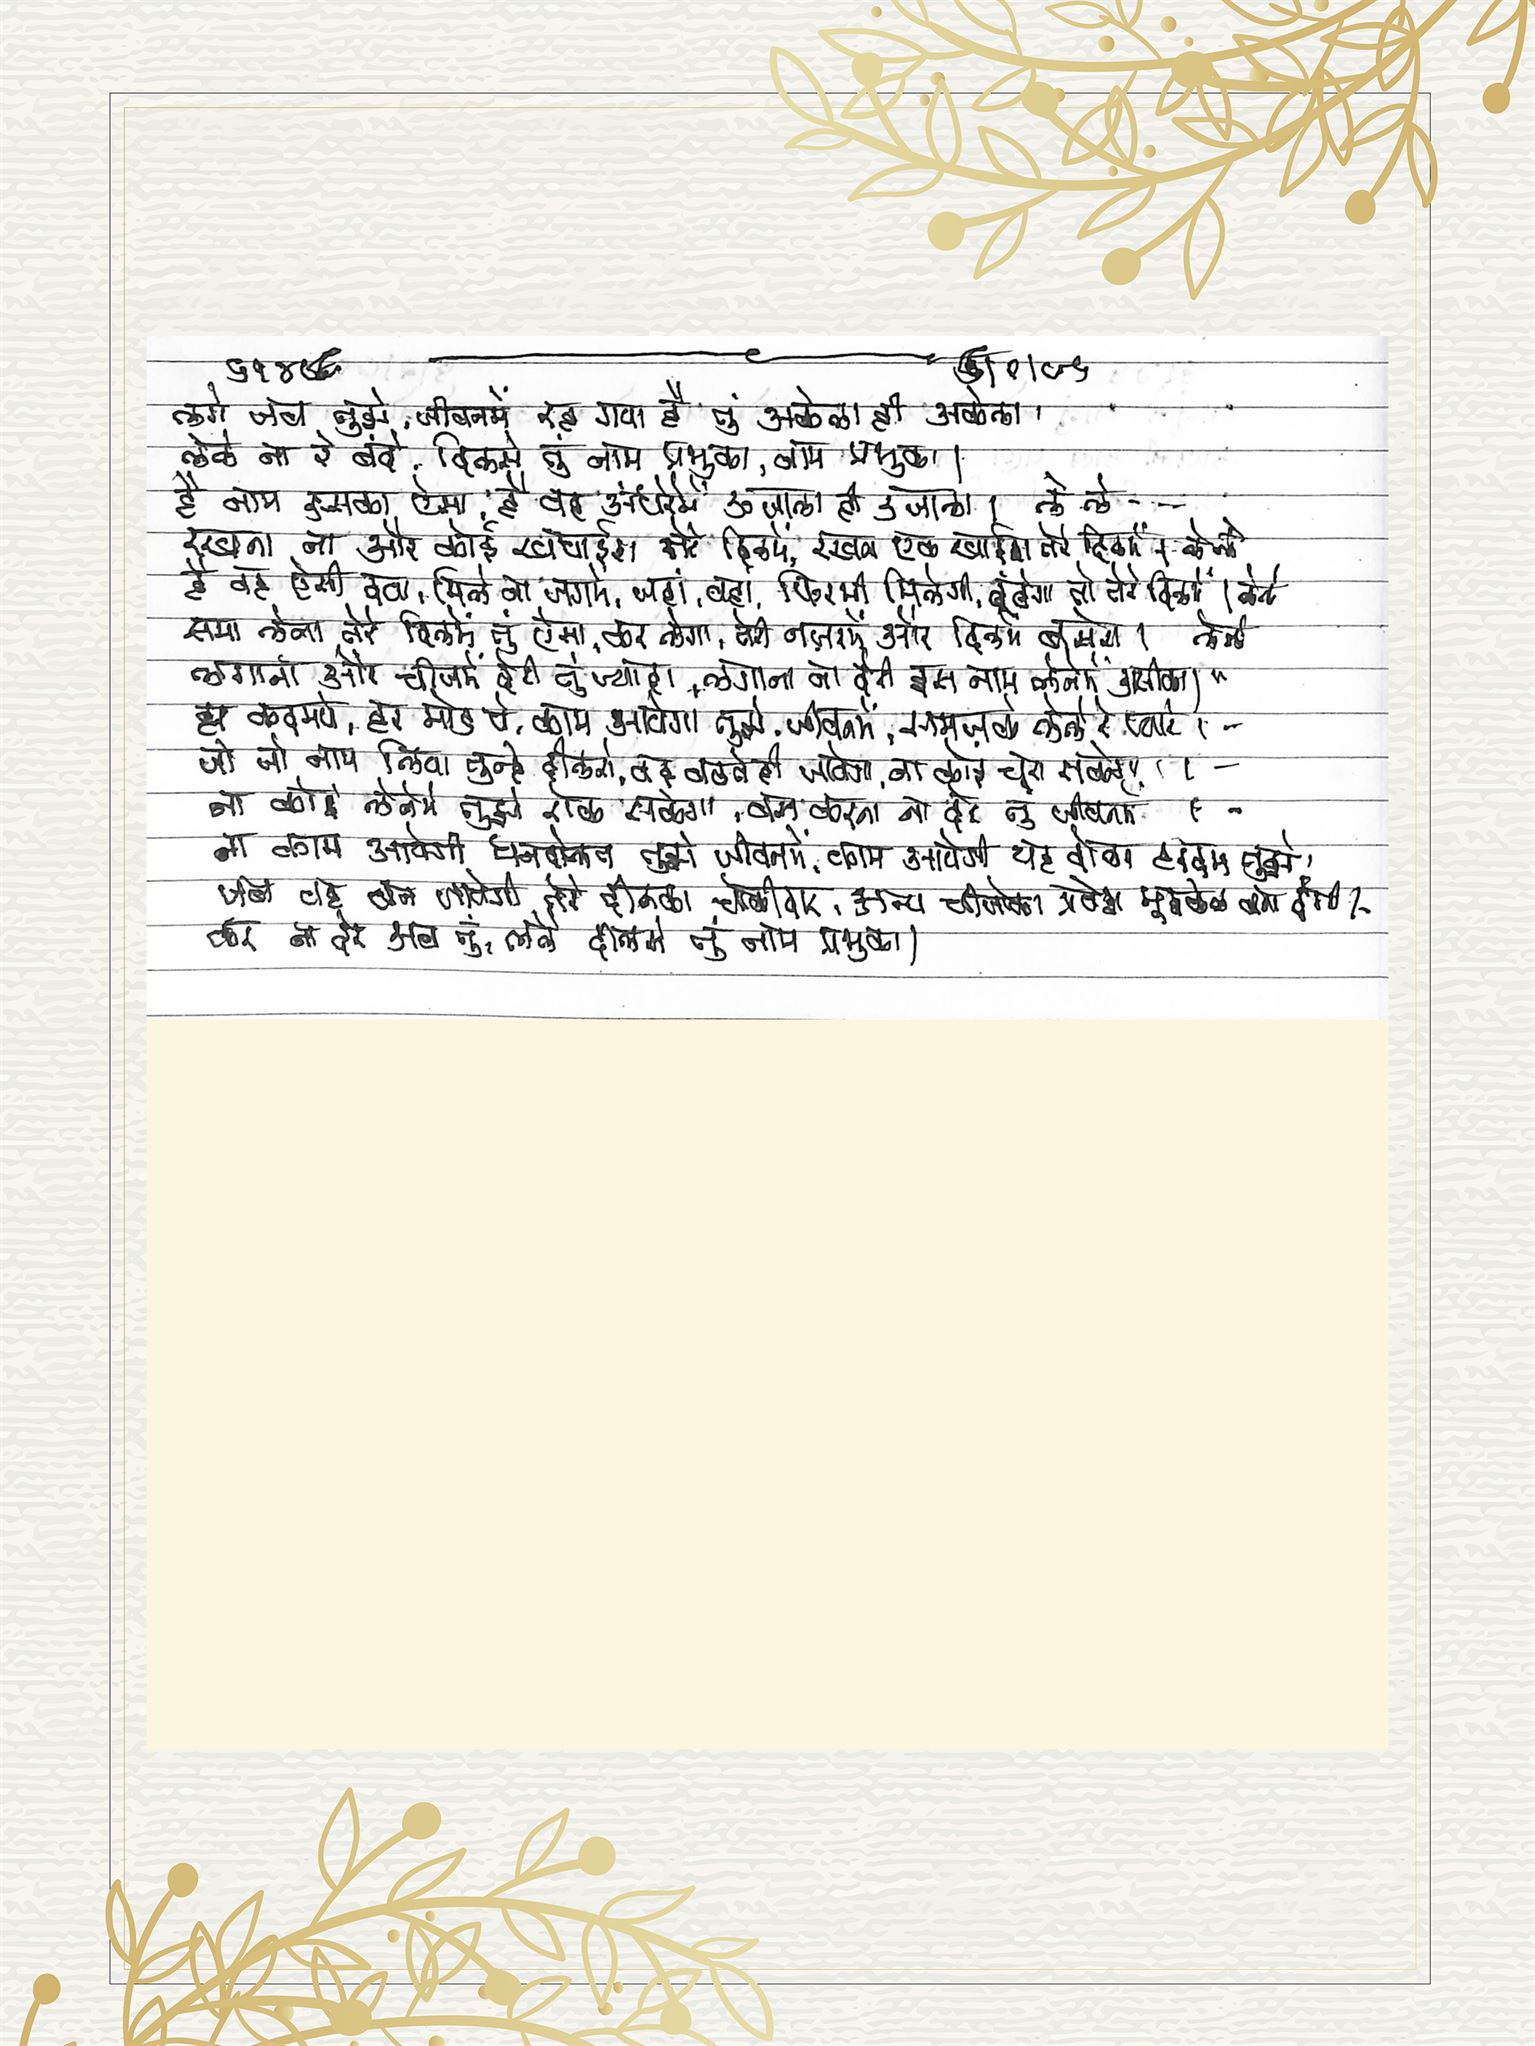 लगे जब तुझे, जीवनमें रह गया है तुं अकेला ही अकेला,
लेले ना रे बंदे, दिलसे तुं नाम प्रभुका, नाम प्रभुका।
है नाम उसका ऐसा, है वह अंधेरेमें उजाला ही उजाला। ले ले - - -
रखना ना और कोई ख्वाईश तेरे दिलमें, रखना एक ख्वाईश तेरे दिलमें। लेले
है वह ऐसी दवा, मिले ना जगमें, जहां, वहां, फिरभी मिलेगी, ढूंढेगा तो तेरे दिलमें। लेले
समा लेना तेरे दिलमें तुं ऐसा, कर लेगा, तेरी नजरमें और दिलमें बसेरा। लेले
लगाना और चीजमें देरी तुं ज्यादा, लगाना ना देरी इस नाम लेनेमें उसीका। "
हर कदमपे, हर मोड पे, काम आयेगा तुझे, जीवनमें, समजके लेले रे प्यारे। -
जो जो नाम लिया तुन्हे दीलसे, वह बढते ही जायेगा, ना कोई चुरा सकेगा। -
ना कोई लेनेमें तुझे रोक सकेगा, बस करना ना देर तु जीवनमें। -
ना काम आयेगी धनदोलत तुझे जीवनमें, काम आयेगी यह दोलत हरदम तुझे,
जब यह बन जायेगी तेरे दीलका चोकीदार, अन्य चीजोका प्रवेश मुश्केल बना देगी।
कर ना देर अब तुं, लेले दीलसे तुं नाम प्रभुका।